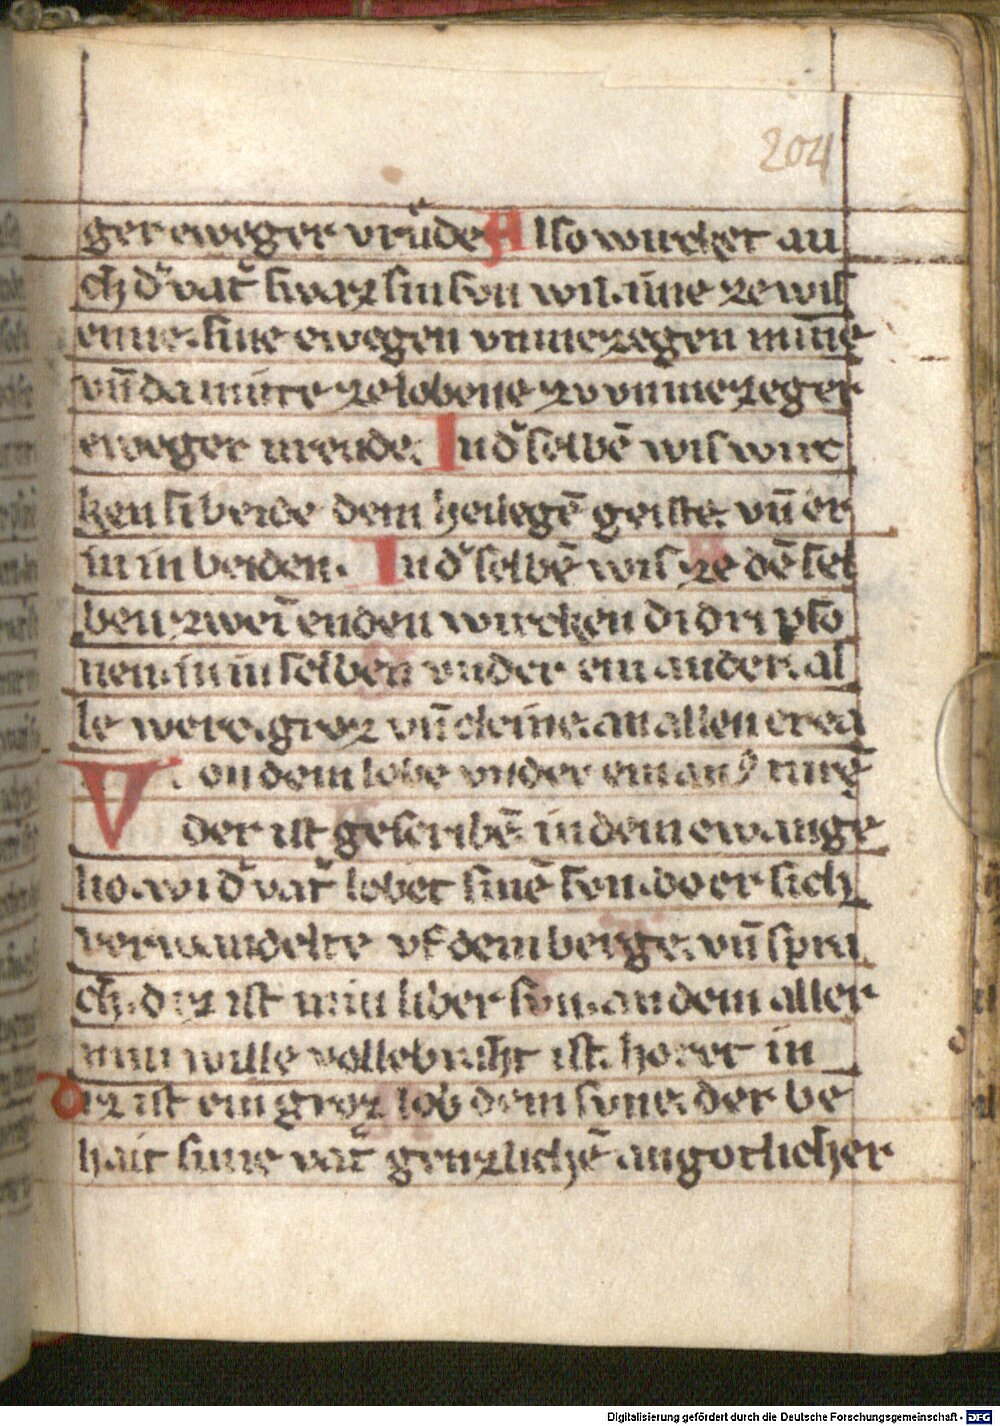 204
ger eweger vrüde Also wircket au
ch d' vat' swaz sin son wil. inne ze wis
enne. sine ewegen vnmezegen minne
vn̄ da mitte ze lobene zv vnmezeger
eweger vreude. In d' selbē wis wirc
ken si beide dem heilegē geiste. vn̄ er
in in beiden. In d' selbē wis ze dē sel
ben zwein enden wircken di dri pso
nen. in in selben vnder ein ander. al
le were. groz vn̄ cleine. an allen crea
Von dem lobe vnder ein and' ture
der ist gescribē in dem ewange
lio. wi d' vat' lobet sinē son. do er sich
verwandelte vf dem berge. vn̄ spra
ch. diz ist min liber son. an dem aller
min wille vollebraht ist. horet in
diz ist ein groz lob dem sone. der be
hait sime vat' genzlichē an gotlicher
Digitalisierung gefördert durch die Deutsche Forschungsgemeinschaft - DFG